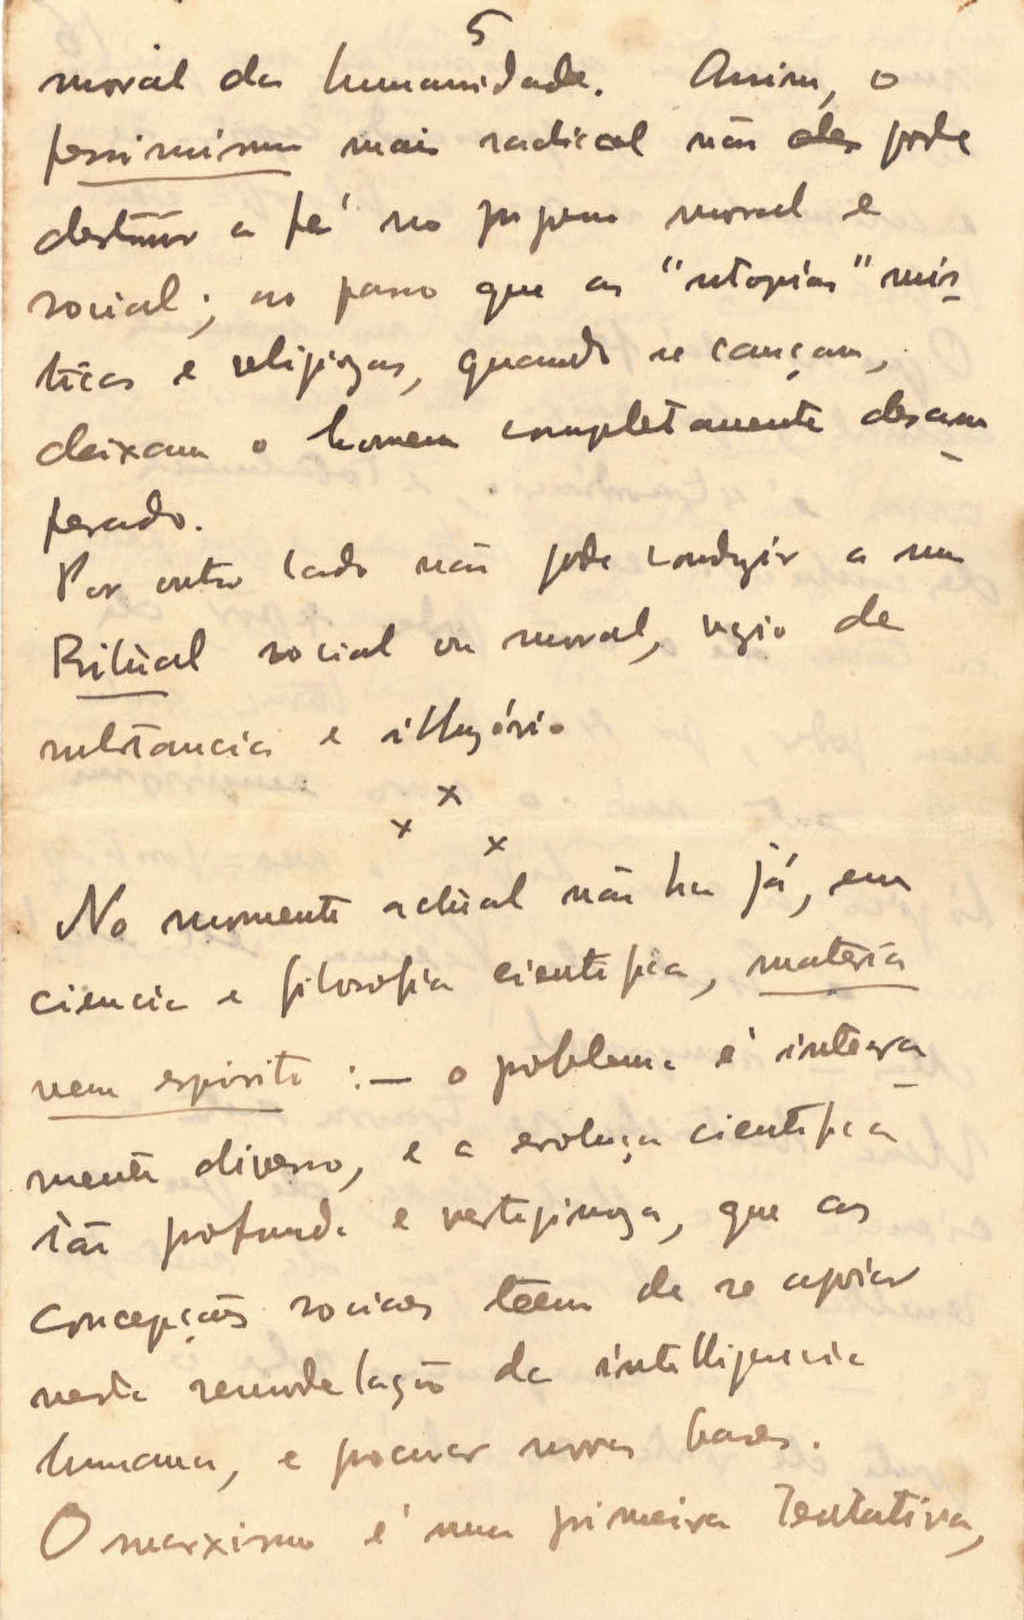 5
moral da humanidade. Assim, o
pessimismo mais radical não pode
destruir a fé no progresso moral e
social; ao passo que as "utopias" mis-
ticas e religiozas, quando se cançam,
deixam o homem completamente desam-
perado.
Por outro lado não pode conduzir a um
Ritual social ou moral, vazio de
substancia e illuzório
x
x x
No momento actual não ha já, em
ciencia e filosofia cientifica, materia
nem espirito :— o problema é inteira-
mente diverso, e a evolução cientifica
tão profunda e vertiginoza, que as
concepções sociaes téem de se apoiar
nesta remodelação da intelligencia
humana, e procurar novas bases.
O marxismo é uma primeira tentativa,